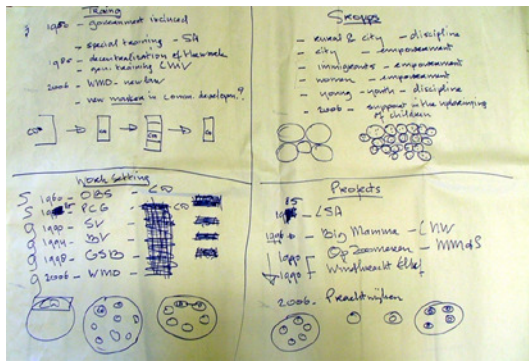 Training
1960 - government included
- special training - SA
1980 - decentralisation of the work
- gen. training CMV
2006 - WMO - new law
- new master in comm. developm.?
CO
CO
CO
Groups
- rural & city - discipline
- city - empowerment
- immigrants - empowerment
- women - empowerment
- young - youth - discipline
- 2006 - support in the upbringing
of children
Work Setting
1960 - OBS - CO
PCG - CO
1990 - SV
1994 - BV
1998 - GSB
2006 - WMO
CO
Projects
85
- LSA
Big Mamma - LNW
1990 Op Zoomeren - MMdS
1990 Windkracht Elluf
2006 - Prachtwijken